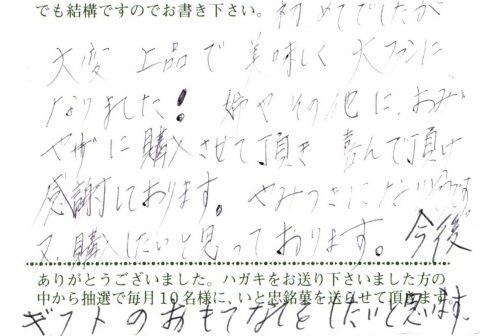 でも結構ですのでお書き下さい。初めてでしたが
大変 上品で 美味しく 大ファンに
なりました! 姉やその他に、おみ
ヤゲに購入させて頂き 喜んで頂け
感謝しております。やみつきになりそうです
又、購入したいと思っております。今後
ありがとうございました。ハガキをお送り下さいました方の
中から抽選で毎月10名様に、いと忠銘菓を送らせて頂きます。
ギフトのおもてなしをしたいと思います。